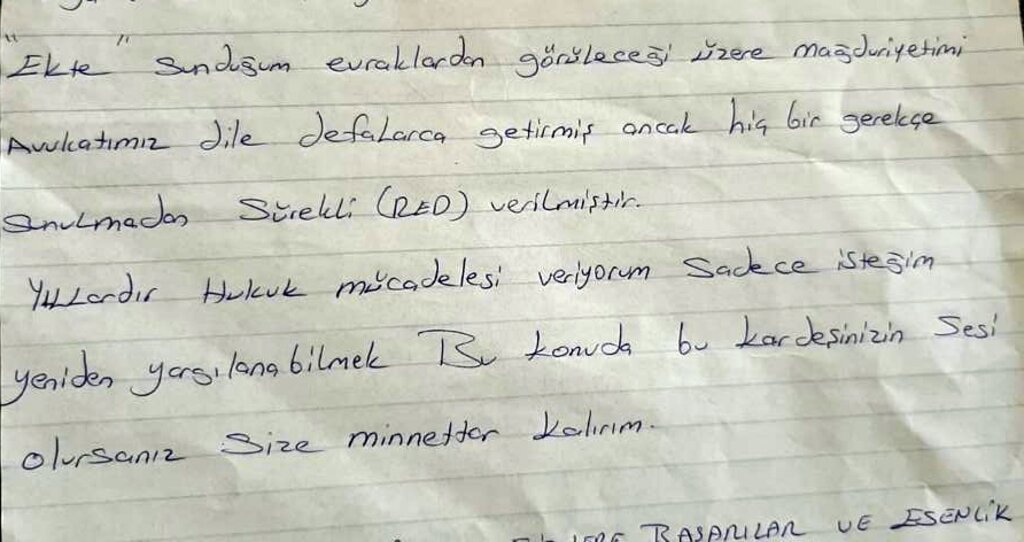 "Ekte" Sunduğum evraklardan görüleceği üzere mağduriyetimi
Avukatımız dile defalarca getirmiş ancak hiç bir gerekçe
Sunulmadan Sürekli (RED) verilmiştir.
Yıllardır Hukuk mücadelesi veriyorum Sadece isteğim
yeniden yargılanabilmek Bu konuda bu kardeşinizin Sesi
olursanız Size minnettar kalırım.
BAŞARILAR VE ESENLİK